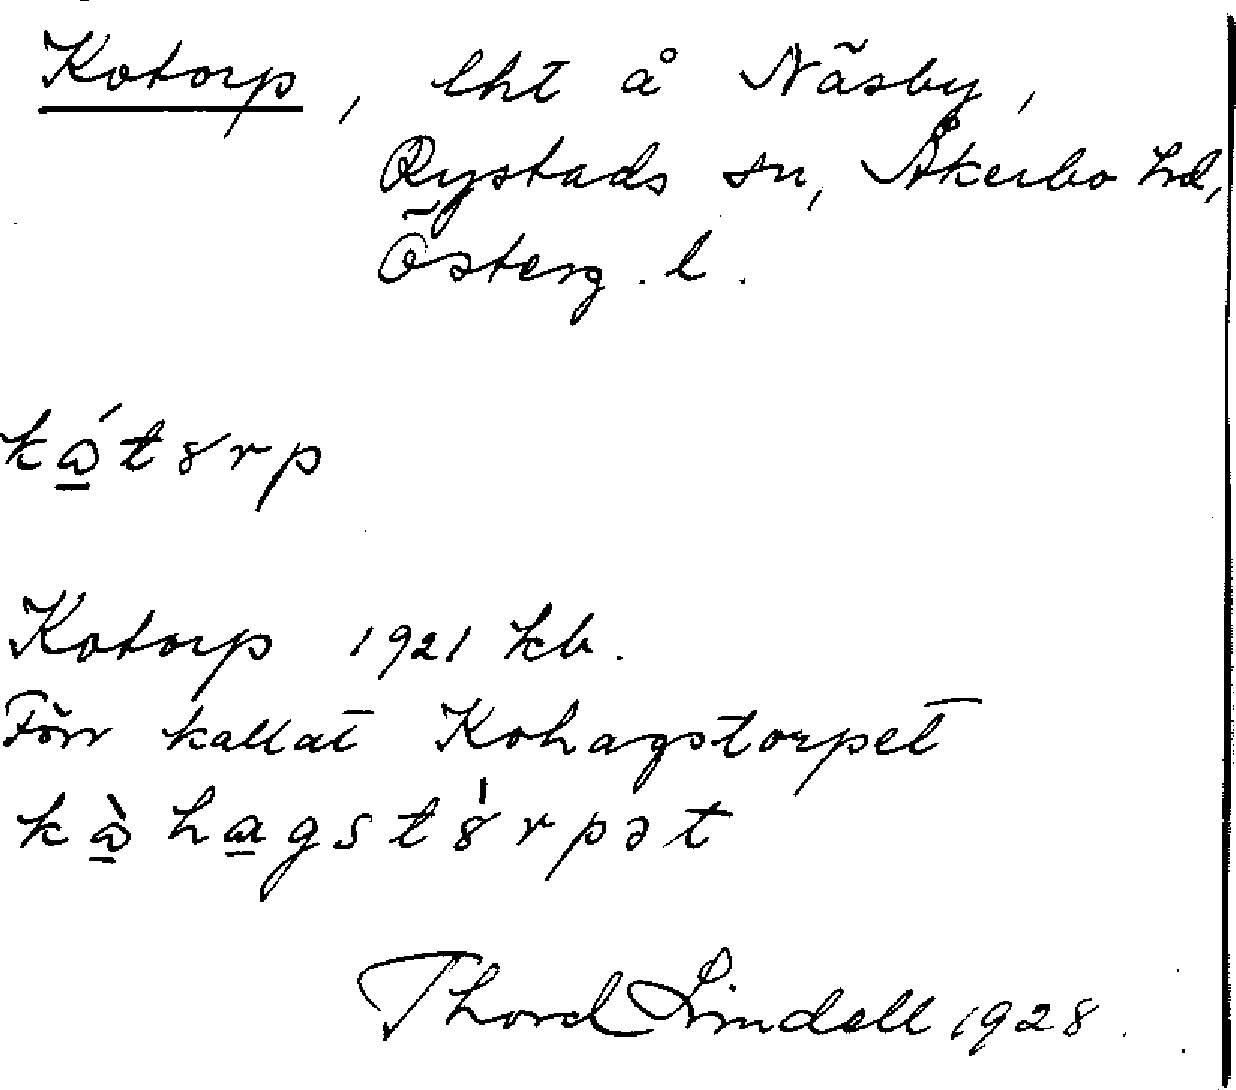 Kotorp, lht å Näsby,
Rystads sn, Åkerbo hd,
Österg. l.
kώ̲tȣrp
Kotorp 1921 kb.
Förr kallat Kohagstorpet
kὼ̲ha̲gstȣ̍rpət
Thord Lindell 1928.